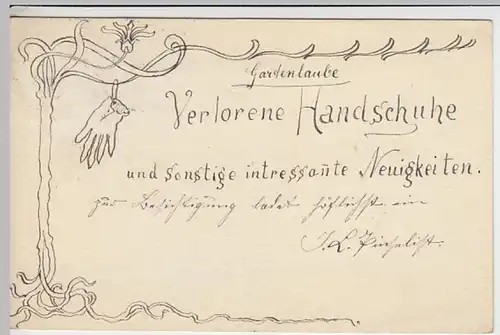 Gartenlaube
Verlorene Handschuhe
und sonstige intressante Neuigkeiten.
zur Besichtigung ladet höflichst ein
J. L.